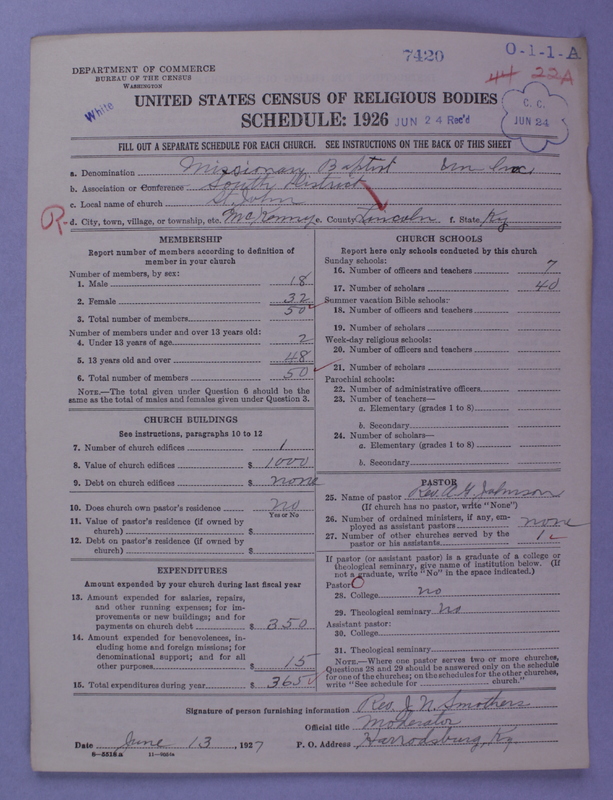 7420
O-1-1-A
DEPARTMENT OF COMMERCE
BUREAU OF THE CENSUS
WASHINGTON
44 22A
White
C. C.
JUN 24
UNITED STATES CENSUS OF RELIGIOUS BODIES
SCHEDULE: 1926 JUN 24 Rec'd
FILL OUT A SEPARATE SCHEDULE FOR EACH CHURCH. SEE INSTRUCTIONS ON THE BACK OF THIS SHEET
a. Denomination Missionary Baptist
b. Association or Conference South District
c. Local name of church St. John
R d. City, town, village, or township, etc. McKenney e. County Lincoln f. State Ky
MEMBERSHIP
Report number of members according to definition of
member in your church
Number of members, by sex:
1. Male 18
2. Female 32
3. Total number of members 50
Number of members under and over 13 years old:
4. Under 13 years of age 2
5. 13 years old and over 48
6. Total number of members 50
NOTE.—The total given under Question 6 should be the
same as the total of males and females given under Question 3.
CHURCH BUILDINGS
See instructions, paragraphs 10 to 12
7. Number of church edifices 1
8. Value of church edifices $ 1000
9. Debt on church edifices $ none
10. Does church own pastor's residence no
Yes or No
11. Value of pastor's residence (if owned by
church) $
12. Debt on pastor's residence (if owned by
church) $
EXPENDITURES
Amount expended by your church during last fiscal year
13. Amount expended for salaries, repairs,
and other running expenses; for im-
provements or new buildings; and for
payments on church debt $ 350
14. Amount expended for benevolences, in-
cluding home and foreign missions; for
denominational support; and for all
other purposes 15
15. Total expenditures during year $ 3650
CHURCH SCHOOLS
Report here only schools conducted by this church
Sunday schools:
16. Number of officers and teachers 7
17. Number of scholars 40
Summer vacation Bible schools:
18. Number of officers and teachers
19. Number of scholars
Week-day religious schools:
20. Number of officers and teachers
21. Number of scholars
Parochial schools:
22. Number of administrative officers
23. Number of teachers—
a. Elementary (grades 1 to 8)
b. Secondary
24. Number of scholars—
a. Elementary (grades 1 to 8)
b. Secondary
PASTOR
25. Name of pastor Rev. A. H. Johnson
(If church has no pastor, write "None")
26. Number of ordained ministers, if any, em-
ployed as assistant pastors none
27. Number of other churches served by the
pastor or his assistants 1
If pastor (or assistant pastor) is a graduate of a college or
theological seminary, give name of institution below. (If
not a graduate, write "No" in the space indicated.)
Pastor: O
28. College no
29. Theological seminary No
Assistant pastor:
30. College
31. Theological seminary
NOTE.—Where one pastor serves two or more churches,
Questions 28 and 29 should be answered only on the schedule
for one of the churches; on the schedules for the other churches,
write "See schedule for church."
Signature of person furnishing information Rev. J. N. Smothers
Official title Moderator
Date June 13, 1927 P. O. Address Harrodsburg, Ky